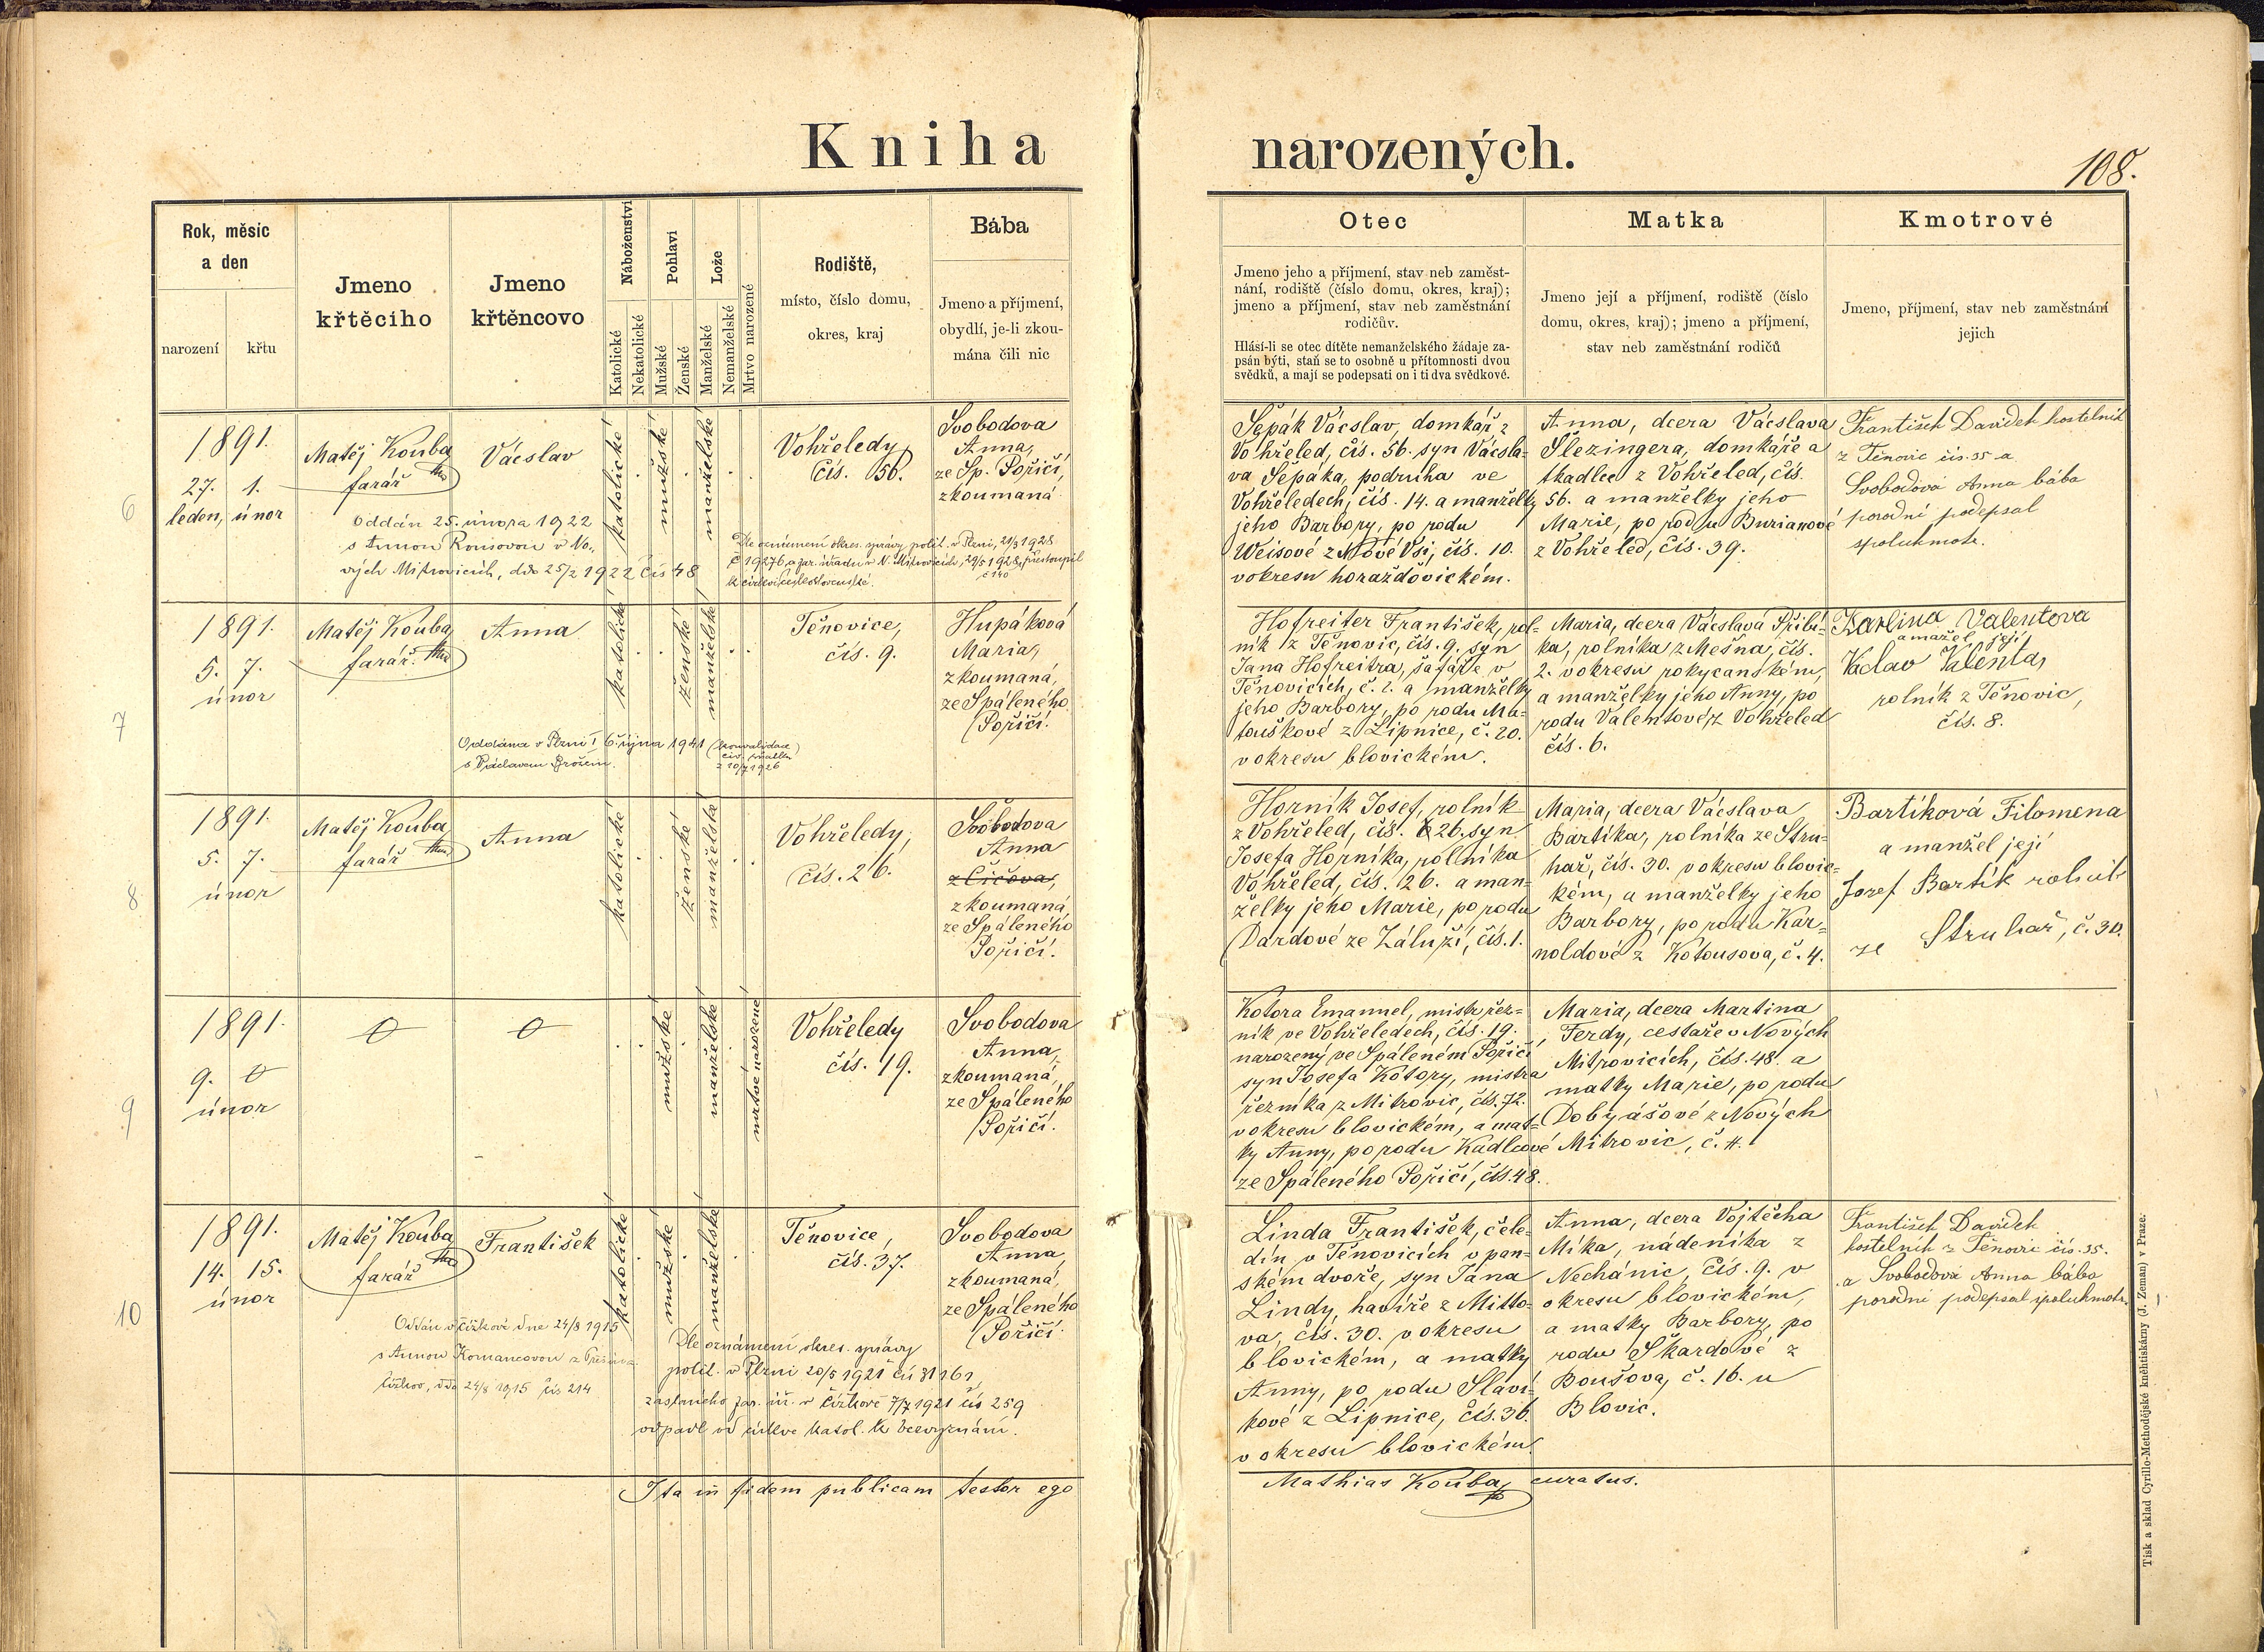 Kniha
narozených.
108.
Rok, měsíc
a den
narození
křtu
Jmeno
křtěcího
Jmeno
křtěncovo
Náboženství
Katolické
Nekatolické
Pohlaví
Mužské
Ženské
Lože
Manželské
Nemanželské
Mrtvo narozené
Rodiště,
místo, číslo domu,
okres, kraj
Bába
Jmeno a příjmení,
obydlí, je-li zkou-
mána čili nic
Otec
Jmeno jeho a příjmení, stav neb zaměst-
nání, rodiště (číslo domu, okres, kraj);
jmeno a příjmení, stav neb zaměstnání
rodičův.
Hlásí-li se otec dítěte nemanželského žádaje za-
psán býti, staň se to osobně u přítomnosti dvou
svědků, a mají se podepsati on i ti dva svědkové.
Matka
Jmeno její a příjmení, rodiště (číslo
domu, okres, kraj); jmeno a příjmení,
stav neb zaměstnání rodičů
Kmotrové
Jmeno, příjmení, stav neb zaměstnání
jejich
6
1891.
27. 1.
leden, únor
Matěj Kouba
farář
Vácslav
katolické
mužské
manželské
Vohřeledy,
čís. 56.
Svobodova
Anna,
ze Sp. Poříčí,
zkoumaná
Oddán 25. února 1922
s Annou Rousovou v No-
vých Mitrovicích, dto 25/2 1922 čís 48
Dle oznámení okres. správy polit. v Plzni, 21/3 1928
č 19276, a far. úřadu v N. Mitrovicích, 29/5 1928, přestoupil
č 140
k církvi československé.
Šepák Vácslav, domkář z
Vohřeled, čís. 56. syn Vácsla-
va Šepáka, podruha ve
Vohřeledech, čís. 14. a manželky
jeho Barbory, po rodu
Weisové z Nové Vsi, čís. 10.
v okresu horažďovickém.
Anna, dcera Vácslava
Slezingera, domkáře a
tkadlce z Vohřeled, čís.
56. a manželky jeho
Marie, po rodu Burianové
z Vohřeled, čís. 39.
František Davídek kostelník
z Těnovic čís. 35 a
Svobodová Anna bába
porodní podepsal
spolukmotr.
7
1891.
5. 7.
únor
Matěj Kouba,
farář.
Anna
katolické
ženské
manželské
Těnovice,
čís. 9.
Hupáková
Maria,
zkoumaná,
ze Spáleného
Poříčí.
Oddána v Plzni I 6. října 1941 (konvalidace
civ. sňatku
z 10/7 1926
s Václavem Brožem.
Hofreiter František, rol-
ník z Těnovic, čís. 9. syn
Jana Hofreitra, šafáře v
Těnovicích, č. 2. a manželky
jeho Barbory, po rodu Ma-
touškové z Lipnice, č. 20.
v okresu blovickém.
Maria, dcera Vácslava Přibí-
ka, rolníka z Mešna, čís.
2. v okresu rokycanském,
a manželky jeho Anny, po
rodu Valentové, z Vohřeled
čís. 6.
Karlina Valentova
a mažel její
Václav Valenta,
rolník z Těnovic,
čís. 8.
8
1891.
5. 7.
únor
Matěj Kouba
farář
Anna
katolické
ženské
manželské
Vohřeledy,
čís. 26.
Svobodova
Anna
z Čičova,
zkoumaná
ze Spáleného
Poříčí.
Horník Josef, rolník
z Vohřeled, čís. 26. syn
Josefa Horníka, rolníka
Vohřeled, čís. 26. a man-
želky jeho Marie, po rodu
Dardové ze Záluží, čís. 1.
Maria, dcera Vácslava
Bartíka, rolníka ze Stru-
hař, čís. 30. v okresu blovic-
kém, a manželky jeho
Barbory, po rodu Kar-
noldové z Kotousova, č. 4.
Bartíková Filomena
a manžel její
Josef Bartík rolník
ze Struhař, č. 30.
9
1891.
9. 0
únor
0
0
mužské
manželské
mrtvé narozené
Vohřeledy
čís. 19.
Svobodova
Anna,
zkoumaná,
ze Spáleného
Poříčí.
Kotora Emanuel, mistr řez-
ník ve Vohřeledech, čís. 19.
narozený ve Spáleném Poříčí,
syn Josefa Kotory, mistra
řezníka z Mitrovic, čís. 72.
v okresu blovickém, a mat-
ky Anny, po rodu Kadlcové
ze Spáleného Poříčí, čís. 48.
Maria, dcera Martina
Ferdy, cestáře v Nových
Mitrovicích, čís. 48. a
matky Marie, po rodu
Dobyášové z Nových
Mitrovic, č. 4.
10
1891.
14. 15.
únor
Matěj Kouba
farář
František
katolické
mužské
manželské
Těnovice,
čís. 37.
Svobodova
Anna,
zkoumaná,
ze Spáleného
Poříčí.
Oddán v Čížkově dne 24/8 1915
s Annou Komancovou z
Čížkov, dto 24/8 1915 čís 214
Dle oznámení okres. správy
polit. v Plzni 20/5 1921 čís 31161,
zaslaného far. úř. v Čížkově 7/7 1921 čís 259
odpadl od církve katol. k bezvyznání.
Linda František, čele-
dín v Těnovicích v pan-
ském dvoře, syn Jana
Lindy, havíře z Mitto-
va, čís. 30. v okresu
blovickém, a matky
Anny, po rodu Slaví-
kové z Lipnice, čís. 36.
v okresu blovickém.
Anna, dcera Vojtěcha
Míka, nádeníka z
Nechánic, čís. 9. v
okresu blovickém,
a matky Barbory, po
rodu Škardové z
Boušova, č. 16. u
Blovic.
František Davídek
kostelník z Těnovic čís. 35.
a Svobodová Anna bába
porodní podepsal spolukmotr.
Ita in fidem publicam testor ego
Mathias Kouba, curatus.
Tisk a sklad Cyrillo-Methodějské knihtiskárny (J. Zeman) v Praze.